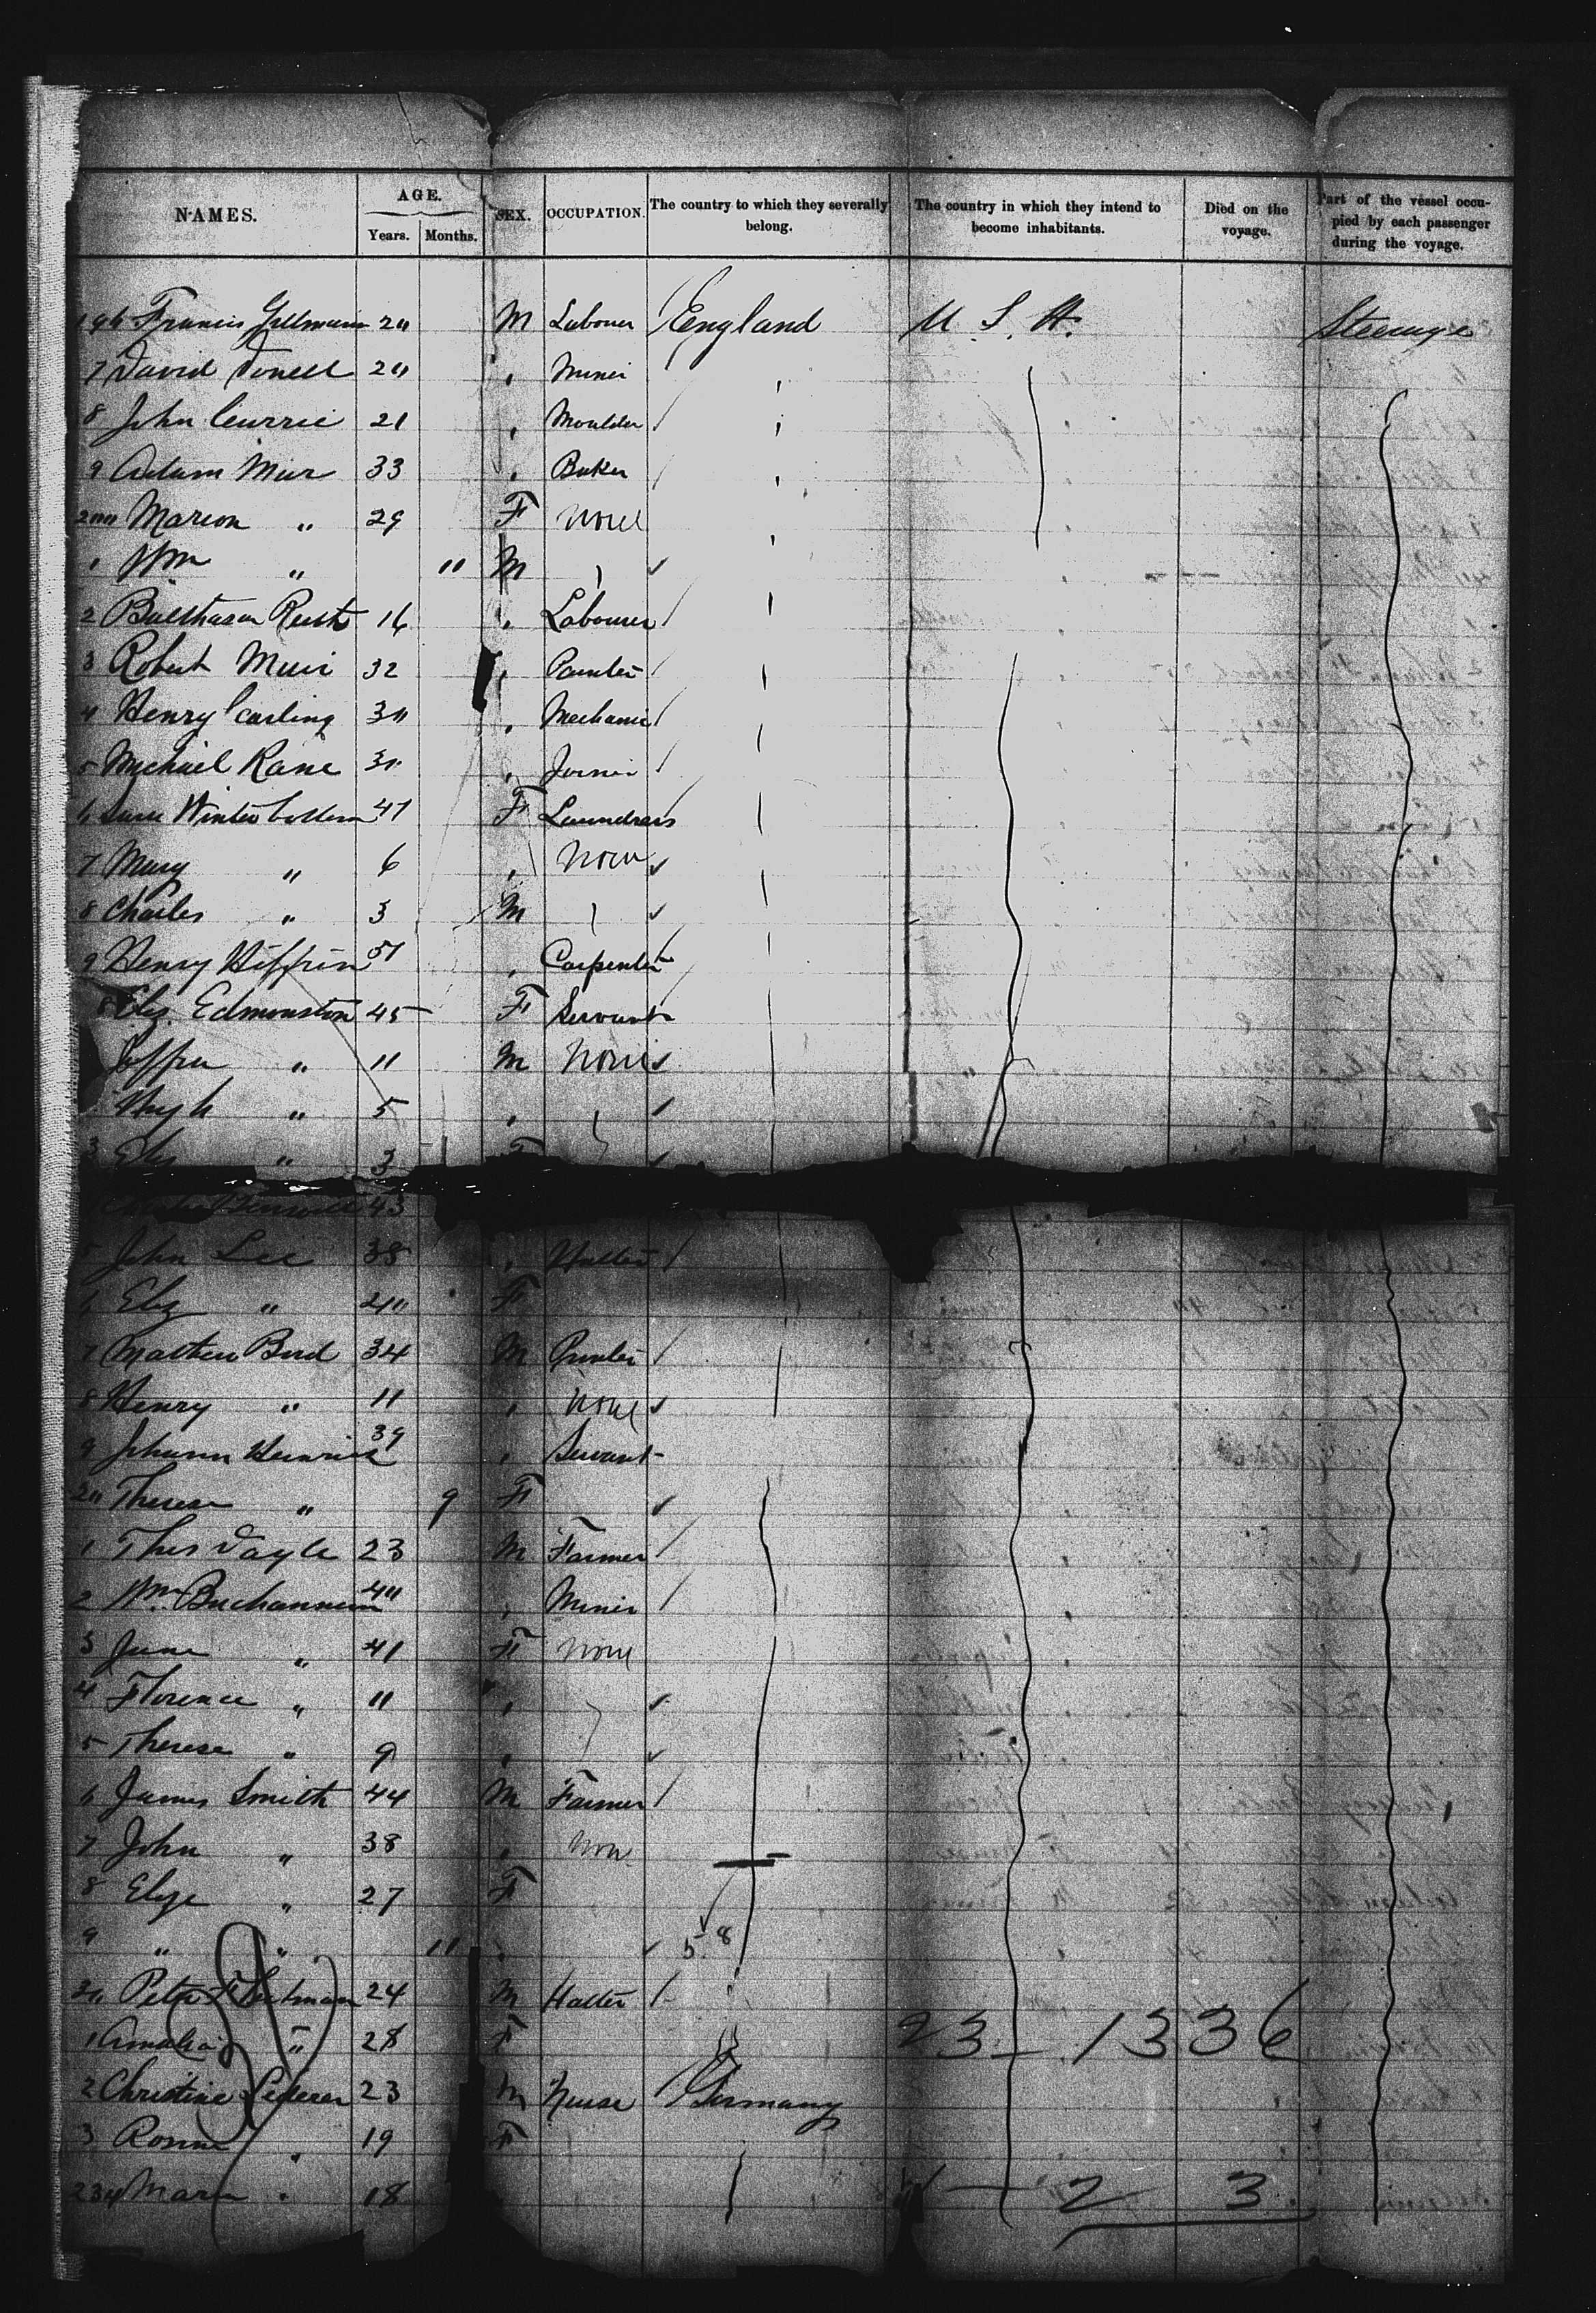 NAMES. AGE. Years. Months. SEX. OCCUPATION. The country to which they severally belong. The country in which they intend to become inhabitants. Died on the voyage. Part of the vessel occupied by each passenger during the voyage.
196 Francis 20 M Labourer England U. S. A. Steerage
7 David 20 " Miner
8 John Currie 21 " Moulder
9 Adam Muir 33 " Baker
200 Marion " 29 F None
1 Wm " 11 M
2 Balthasar Rust 16 " Labourer
3 Robert Muir 32 " Painter
4 Henry Carling 30 " Mechanic
5 Michael Kane 30 " Joiner
6 Winterbottom 41 F Laundress
7 Mary " 6 " None
8 Charles " 3 M
9 Henry 51 " Carpenter
Eliz. Edmonston 45 F Servant
" 11 M None
Hugh " 5 "
3 Eliz " 3 F
43
5 John Lee 38 " Hatter
6 Eliz " 40 F
7 Mathew Bird 34 M Printer
8 Henry " 11 " None
9 Johann Heinrich 39 " Servant
20 Therese " 9 F
1 Thos 23 M Farmer
2 Wm. Buchannan 40 " Miner
3 Jane " 41 F None
4 Florence " 11 "
5 Therese " 9 "
6 James Smith 44 M Farmer
7 John " 38 " None
8 Eliza " 27 F
9 " " 11 " 58
30 Peter 24 M Hatter
1 Amalia " 28 F 23 - 1336
2 Christine Lederer 23 M Nurse Germany
3 Rosina " 19 F
234 Maria " 18 1 - 2 3